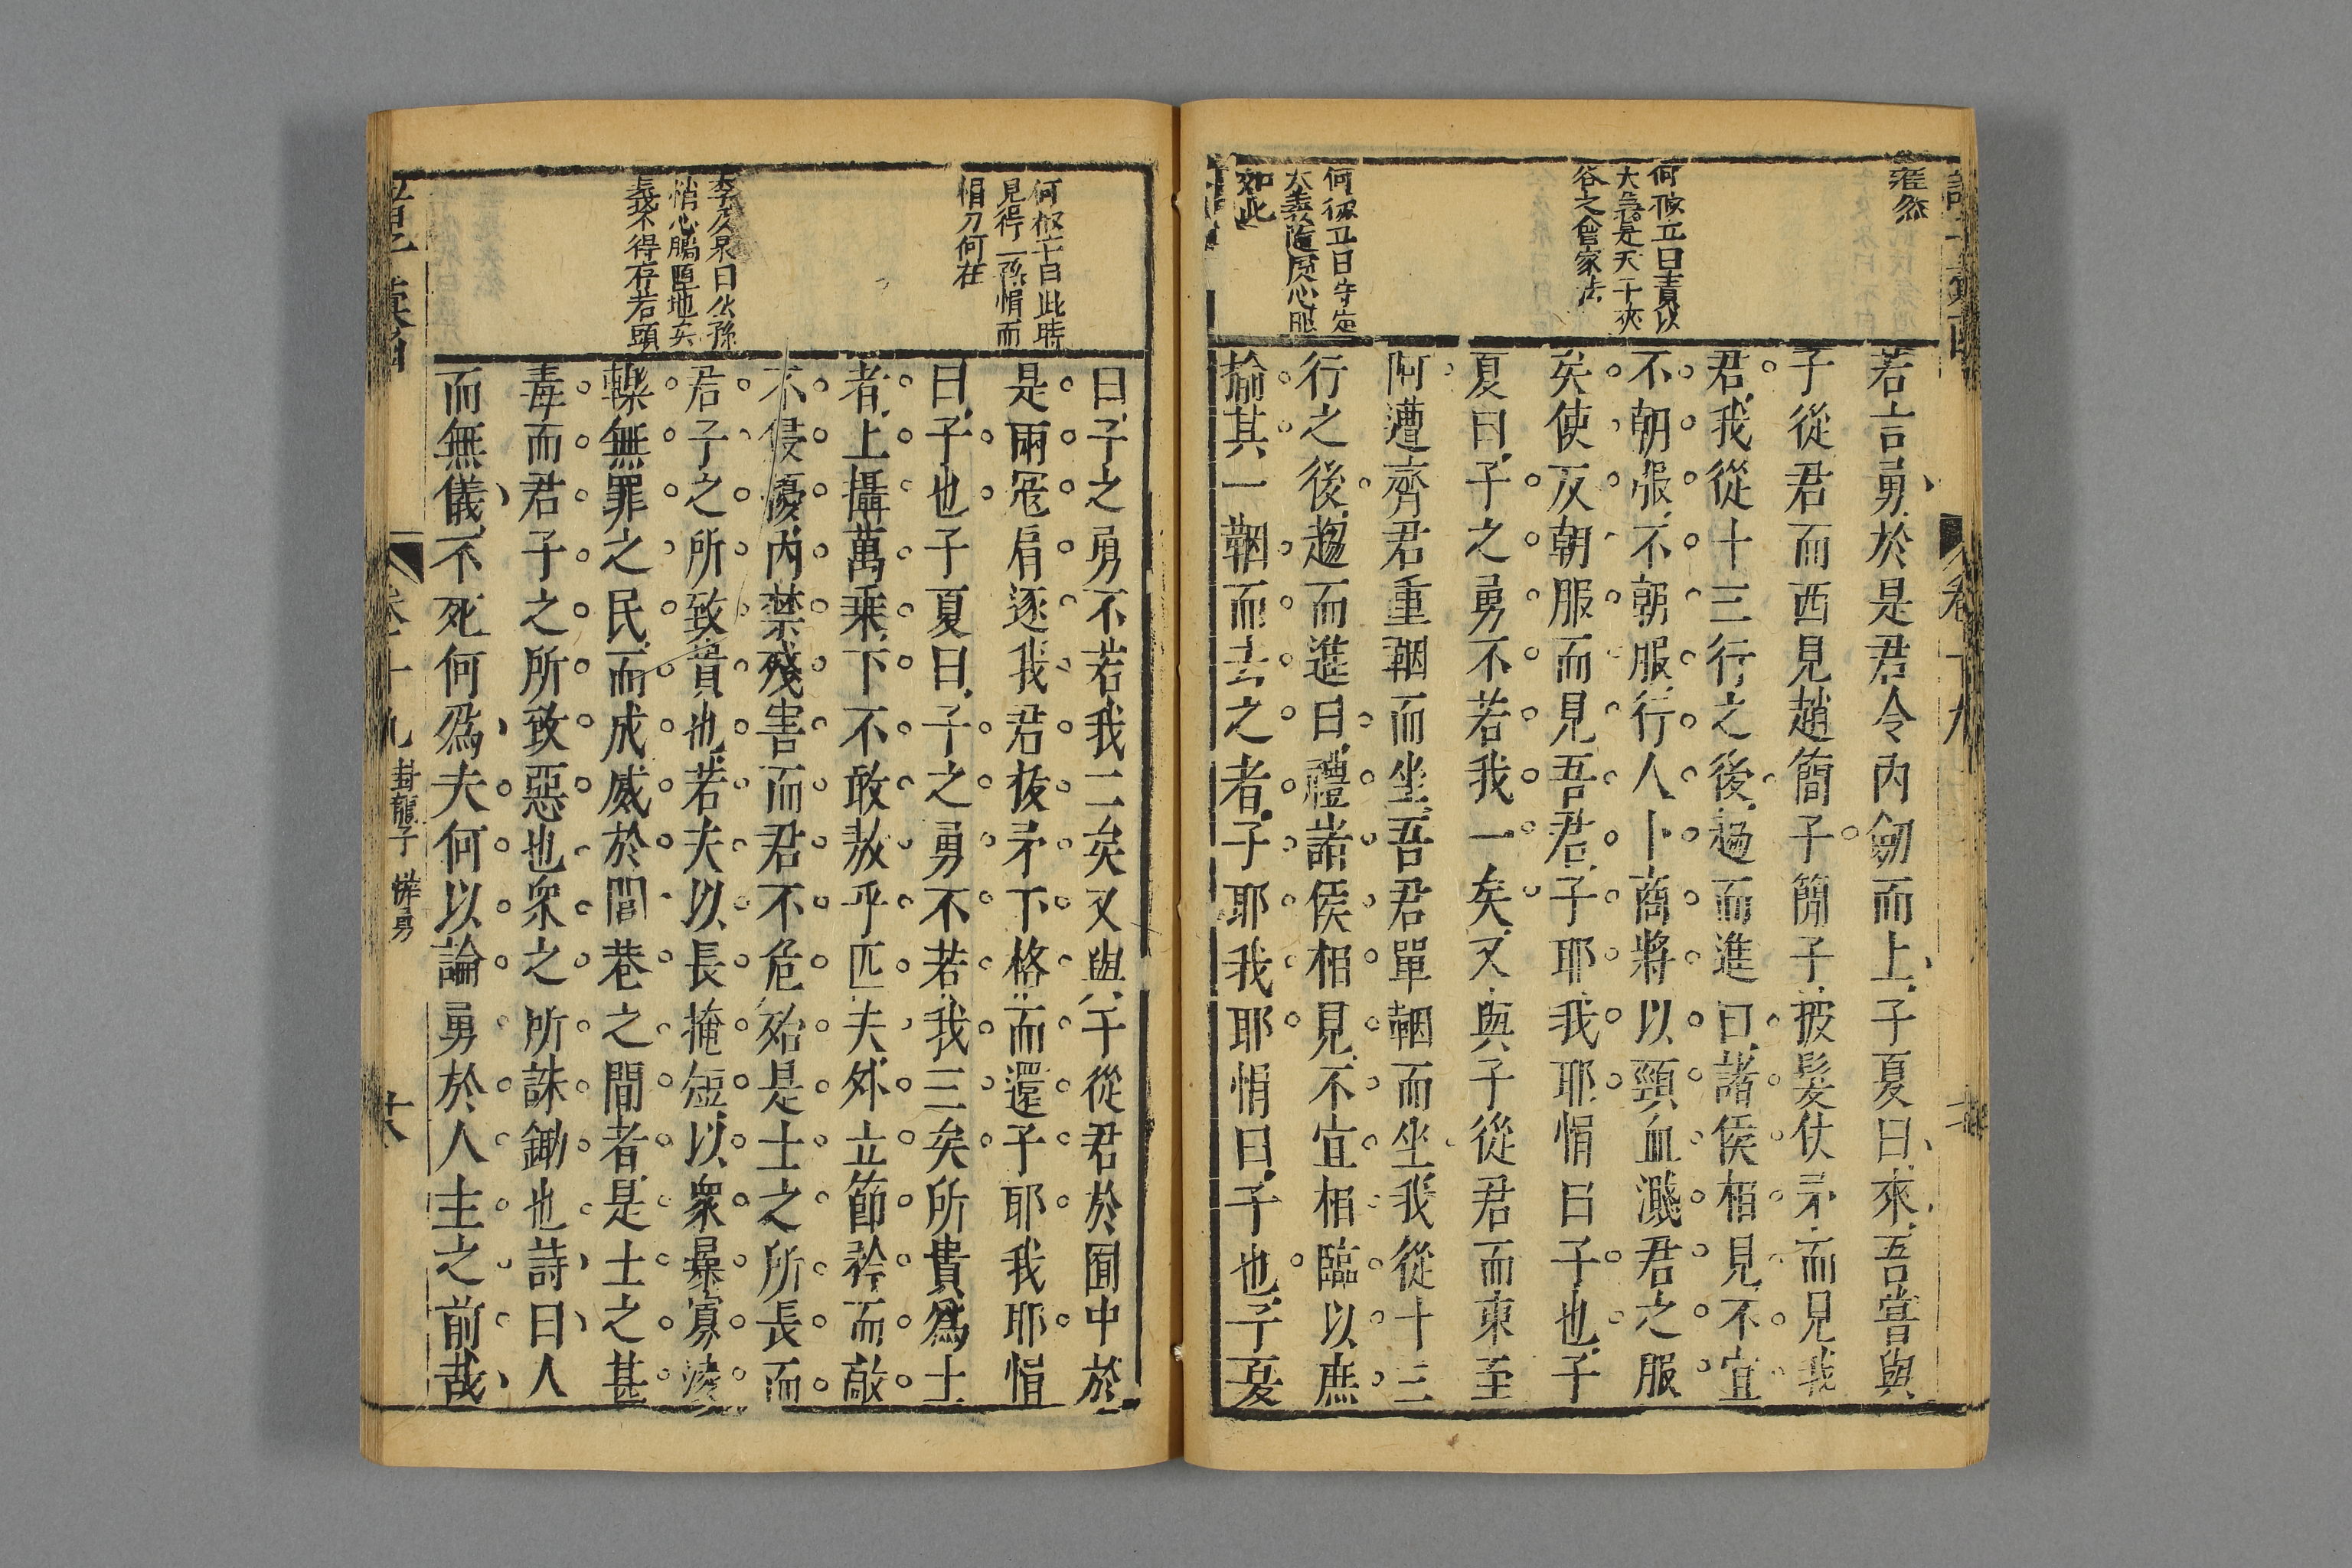 若言勇於是君令內劒而上子夏曰來吾嘗與
子從君而西見趙簡子簡子披髮仗矛而見我
君我從十三行之後趨而進曰諸侯相見不宜
不朝服不朝服行人卜商將以頸血濺君之服
矣使反朝服而見吾君子耶我耶悁曰子也子
夏曰子之勇不若我一矣又與子從君而東至
阿遭齊君重鞇而坐吾君單鞇而坐我從十三
行之後趨而進曰禮諸侯相見不宜相臨以庶
揄其一鞇而去之者子耶我耶悁曰子也子夏
何俶立曰責以
大義是天
谷之會家法
何俶立曰守定
大義隨處心服
如此
曰子之勇不若我二矣又與子從君於囿中於
是兩冠肩逐我君拔矛下格而還子耶我耶悁
曰子也子夏曰子之勇不若我三矣所貴為士
者上攝萬乘下不敢敖乎匹夫外立節矜而敵
不侵擾內禁殘害而君不危殆是士之所長而
君子之所致貴也若夫以長掩短以眾暴寡淩
轢無罪之民而成威於閭巷之間者是士之甚
毒而君子之所致惡也眾之所誅鋤也詩曰人
而無儀不死何為夫何以論勇於人主之前哉
此時
見得一孫悁而
悁刀何在
曰公孫
悁心膓墮地矣
義不得存若頭
卷十九
封龍子